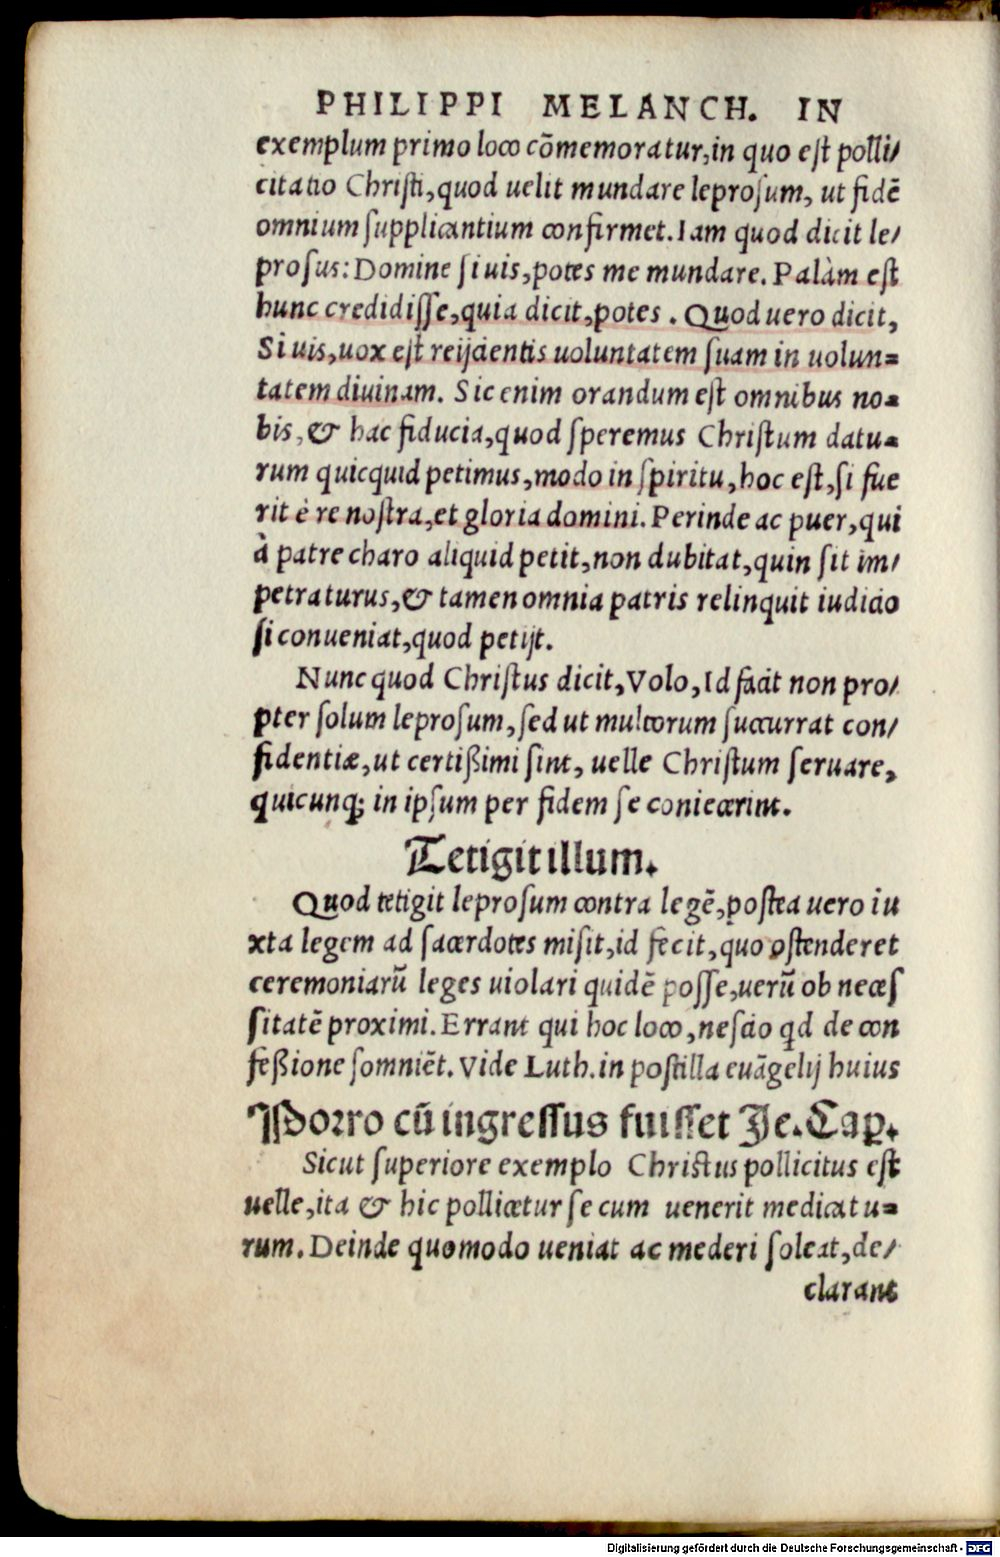 PHILIPPI MELANCH. IN
exemplum primo loco cōmemoratur,in quo eſt polli/
citatio Chriſti,quod uelit mundare leproſum, ut fidē
omnium ſupplicantium confirmet. Iam quod dicit le/
proſus: Domine ſi uis,potes me mundare. Palàm eſt
hunc credidiſſe,quia dicit,potes . Quod uero dicit,
Si uis,uox eſt reijcientis uoluntatem ſuam in uolun=
tatem diuinam. Sic enim orandum eſt omnibus no=
bis,& hac fiducia,quod ſperemus Chriſtum datu=
rum quicquid petimus,modo in ſpiritu,hoc eſt,ſi fue
rit è re noſtra,et gloria domini. Perinde ac puer,qui
à patre charo aliquid petit,non dubitat,quin ſit im/
petraturus,& tamen omnia patris relinquit iudicio
ſi conueniat,quod petijt.
Nunc quod Chriſtus dicit,Volo,Id facit non pro/
pter ſolum leproſum,ſed ut multorum ſuccurrat con/
fidentiæ,ut certißimi ſint, uelle Chriſtum ſeruare,
quicunq; in ipſum per fidem ſe coniecerint.
Tetigit illum.
Quod tetigit leproſum contra legē,poſtea uero iu
xta legem ad ſacerdotes miſit,id fecit,quo oſtenderet
ceremoniarū leges uiolari quidē poſſe,uerū ob neceſ
ſitatē proximi. Errant qui hoc loco,neſcio qd de con
feßione ſomniēt. Vide Luth.in poſtilla euāgelij huius
Porro cū ingreſſus fuiſſet Je. Cap.
Sicut ſuperiore exemplo Chriſtus pollicitus eſt
uelle,ita & hic pollicetur ſe cum uenerit medicatu=
rum. Deinde quomodo ueniat ac mederi ſoleat,de/
clarant
Digitalisierung gefördert durch die Deutsche Forschungsgemeinschaft - DFG